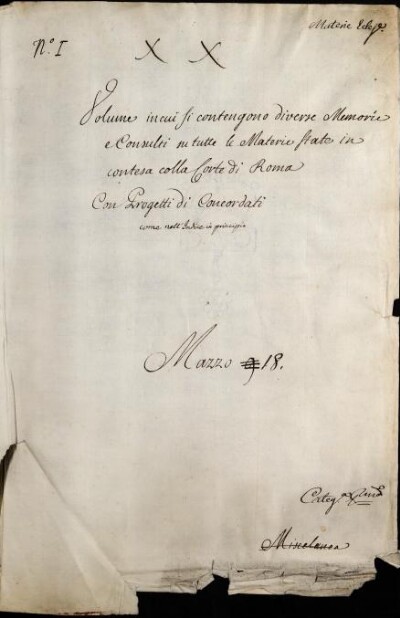 Materie Eccle.
N.º I X X
Volume in cui si contengono diverse Memorie
e Consulti su tutte le Materie state in
contesa colla Corte di Roma
Con Progetti di Concordati
come nell'Indice in principio
Mazzo 9 18.
Categ.ª
Miscelanea